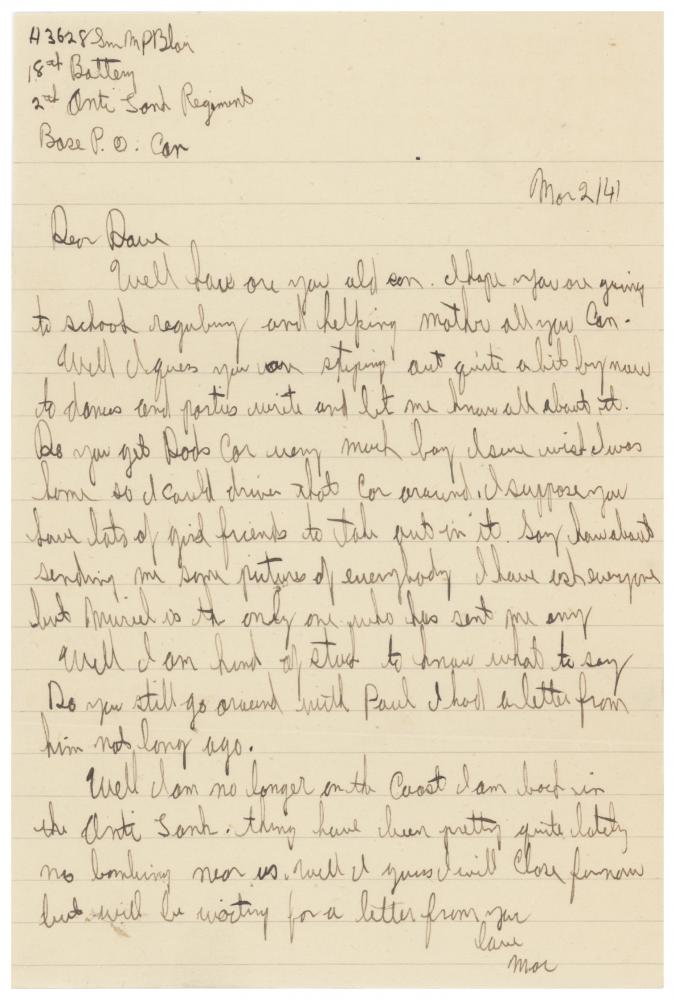 H3628 Gnr M P Blair
18th Battery
2nd Anti Tank Regiment
Base P. O. Can
Mar 2/41
Dear Dave
Well how are you old son. I hope you are going
to school regulary and helping mother all you Can.
Well I guess you are steping out quite a bit by now
to dances and parties write and let me know all about it.
Do you get Dads Car very much boy I sure wish I was
home so I could drive that Car around. I suppose you
have lots of girl friends to take out in it. Say how about
sending me some pictures of everybody I have ask everyone
but Muriel is the only one who has sent me any
Well I am kind of stuck to know what to say
Do you still go around with Paul I had a letter from
him not long ago.
Well I am no longer on the Coast I am back in
the Anti Tank. thing have been pretty quite lately
no bombing near us. Well I guess I will Close for now
but will be waiting for a letter from you
Love
Mac